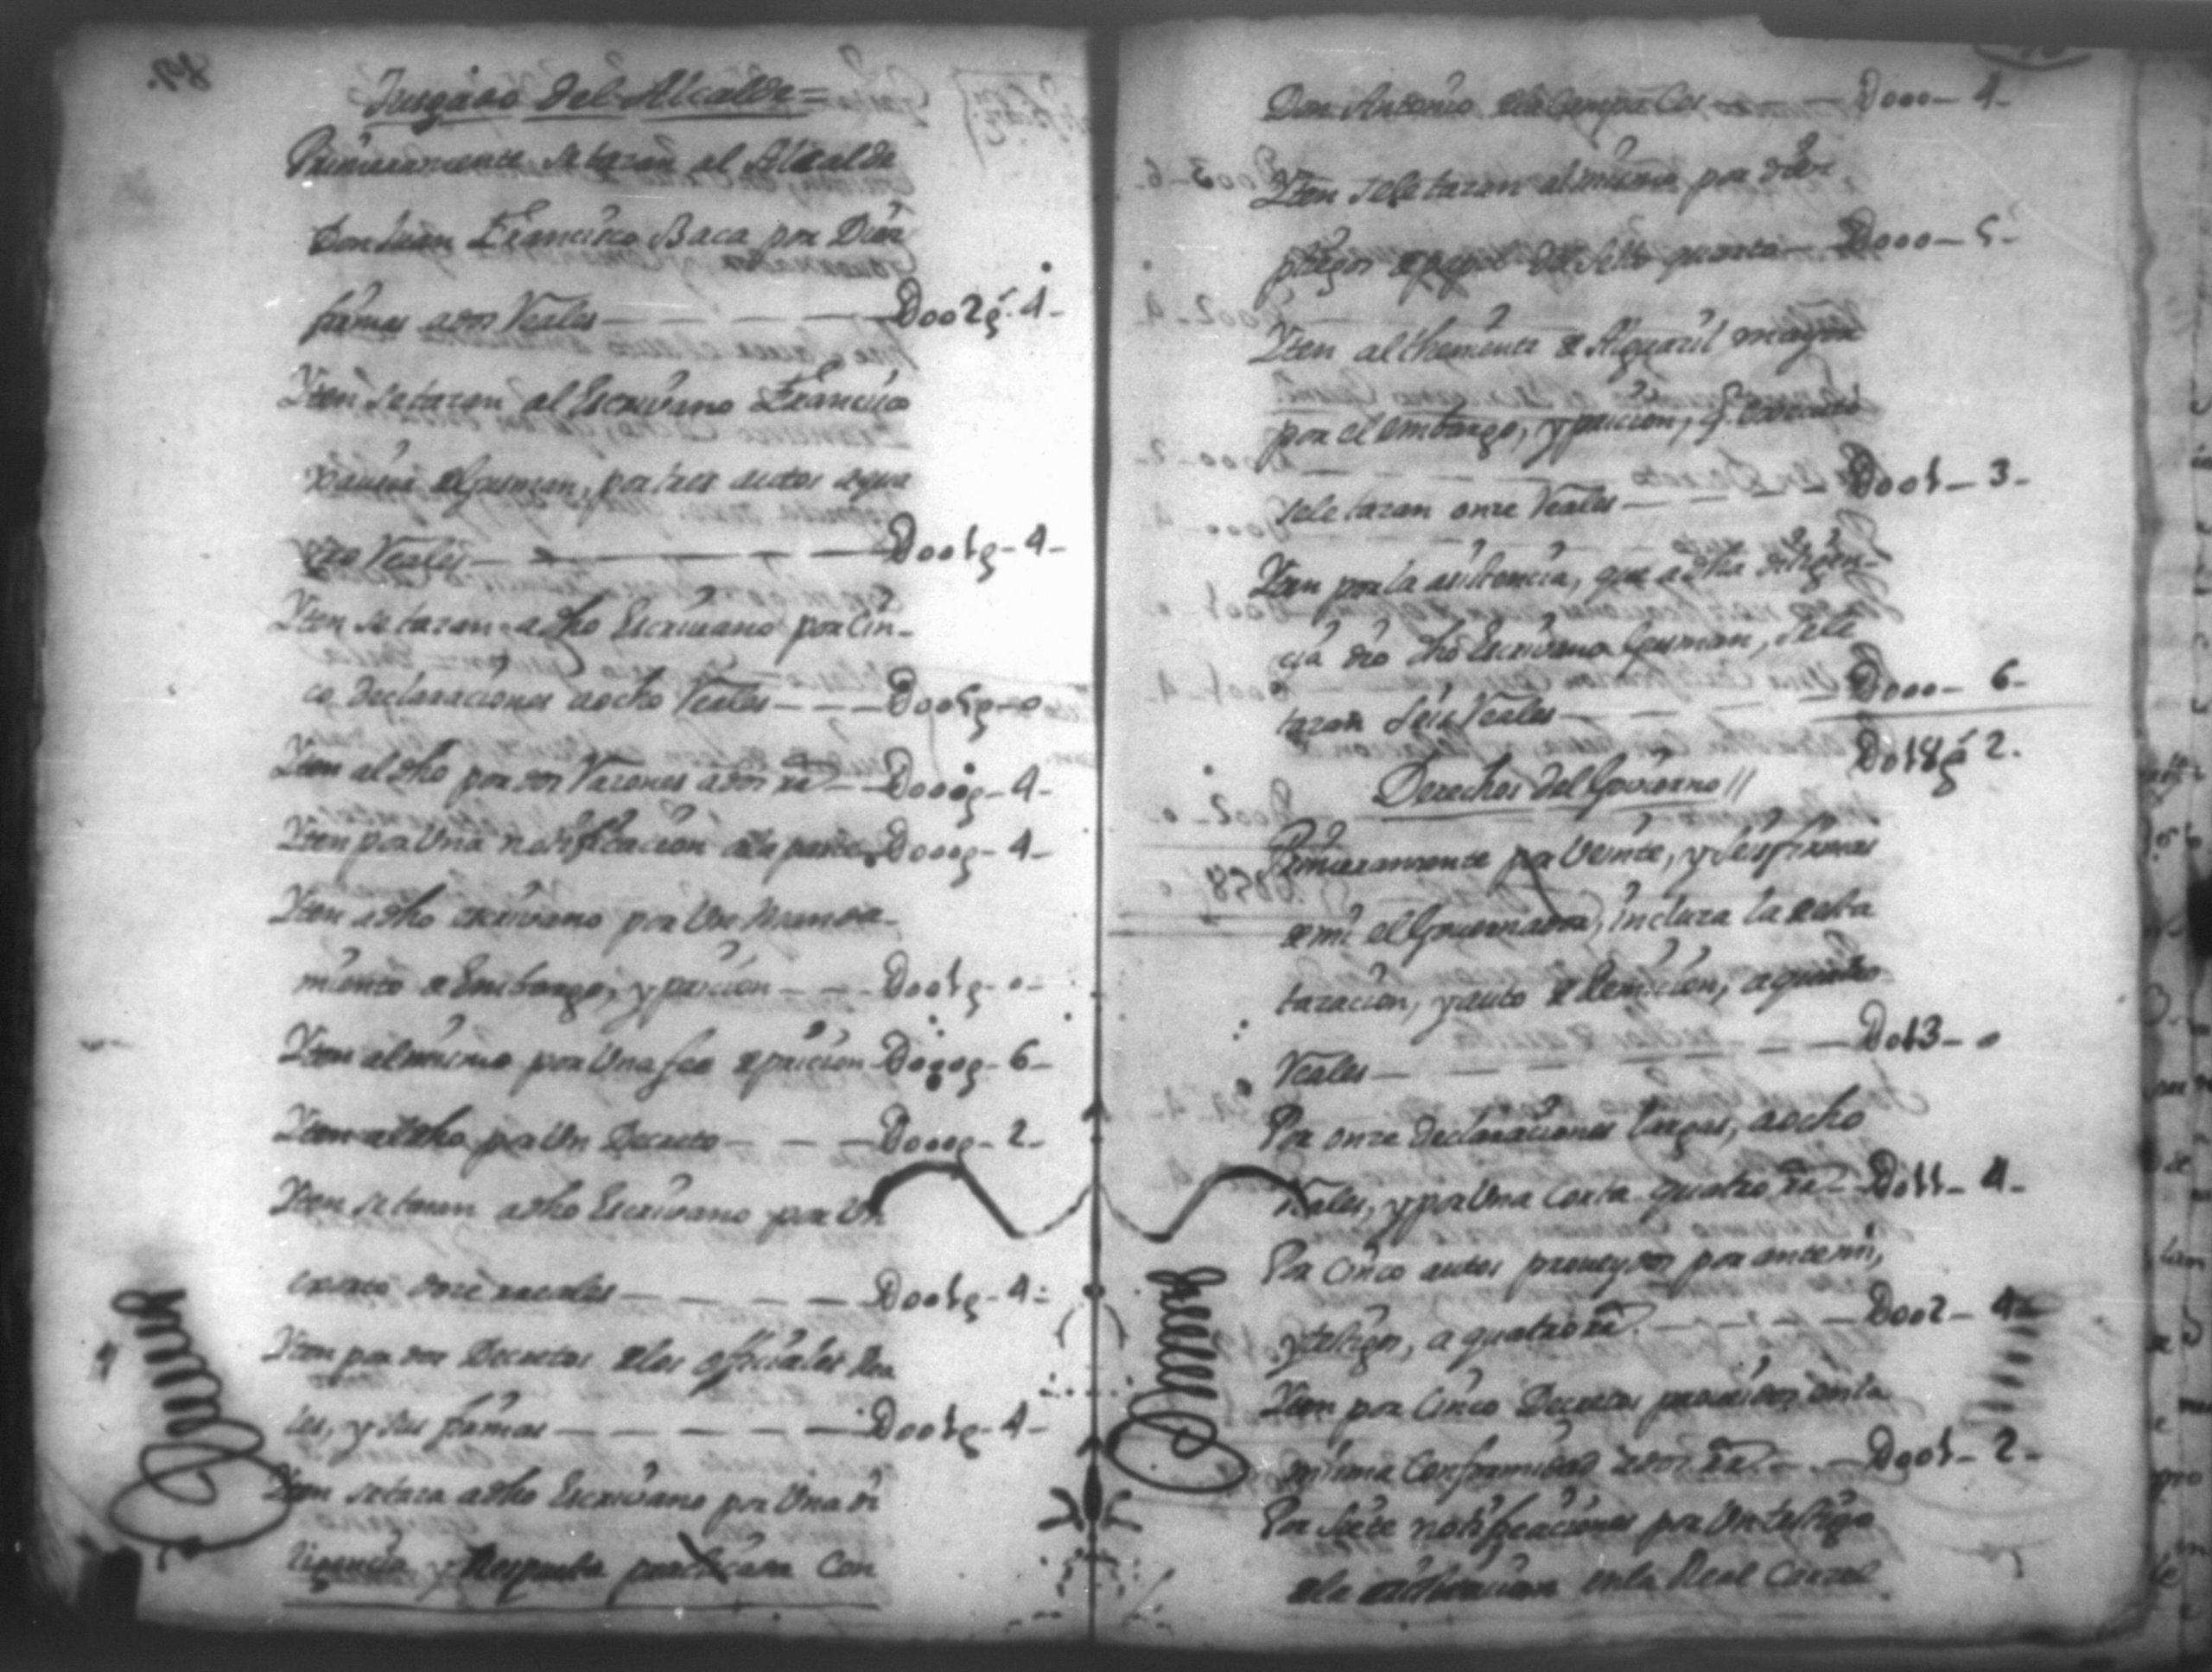 Juzgado del Alcalde=
Primeramente se tazan al Alcalde
Don Juan Francisco Baca por Diez
firmas a dos Reales — D002p 4-
Yten se tazan al Escrivano Francisco
Xavier de Gusman, por tres autos a qua
tro Reales — D001p-4-
Yten se tazan a dho Escrivano por Cin-
co declaraciones a ocho Reales — D005p-0
Yten al dho por dos Razones a dos rs — D000p-4-
Yten por Una notificacion a la parte D000p-4-
Yten a dho escrivano por Un Manda-
miento de Embargo, y pricion — D001p-0-
Yten al mismo por Una fee de pricion D000p-6-
Yten al dho por Un Decreto — D000p-2-
Yten se tazan a dho Escrivano por Un
doze reales — D001p-4-
Yten por dos Decretos de los officiales Rea
les, y sus firmas — D001p-4-
Yten se taza a dho Escrivano por Una di
ligencia y Respuesta practicada Con
Don Antonio de la Campa Cos — D000-4-
Yten se le tazan al mismo por diez
pliegos de papel del sello quarto — D000-5-
Yten al theniente de Alguazil mayor
por el embargo, y pricion, q. executó
se le tazan onze Reales — D001-3-
Yten por la asistencia, que a dha diligen-
cia dio dho Escrivano Gusman, se le
tazan Seis Reales — D000-6-
D018p 2.
Derechos del Govierno //
Primeramente por Veinte, y seis firmas
de mi el Governador, inclusa la de esta
tazacion, y auto de Remicion, a quatro
Reales — D013-0
Por onze declaraciones largas, a ocho
Reales, y por Una corta quatro rs — D011-4-
Por Cinco autos proveydos por ante mi,
y testigos, a quatro rs — D002-4-
Yten por Cinco Decretos proveidos en la
misma Conformidad a dos rs — D001-2-
Por Siete notificaciones por Un testigo
de la en la Real Carzel